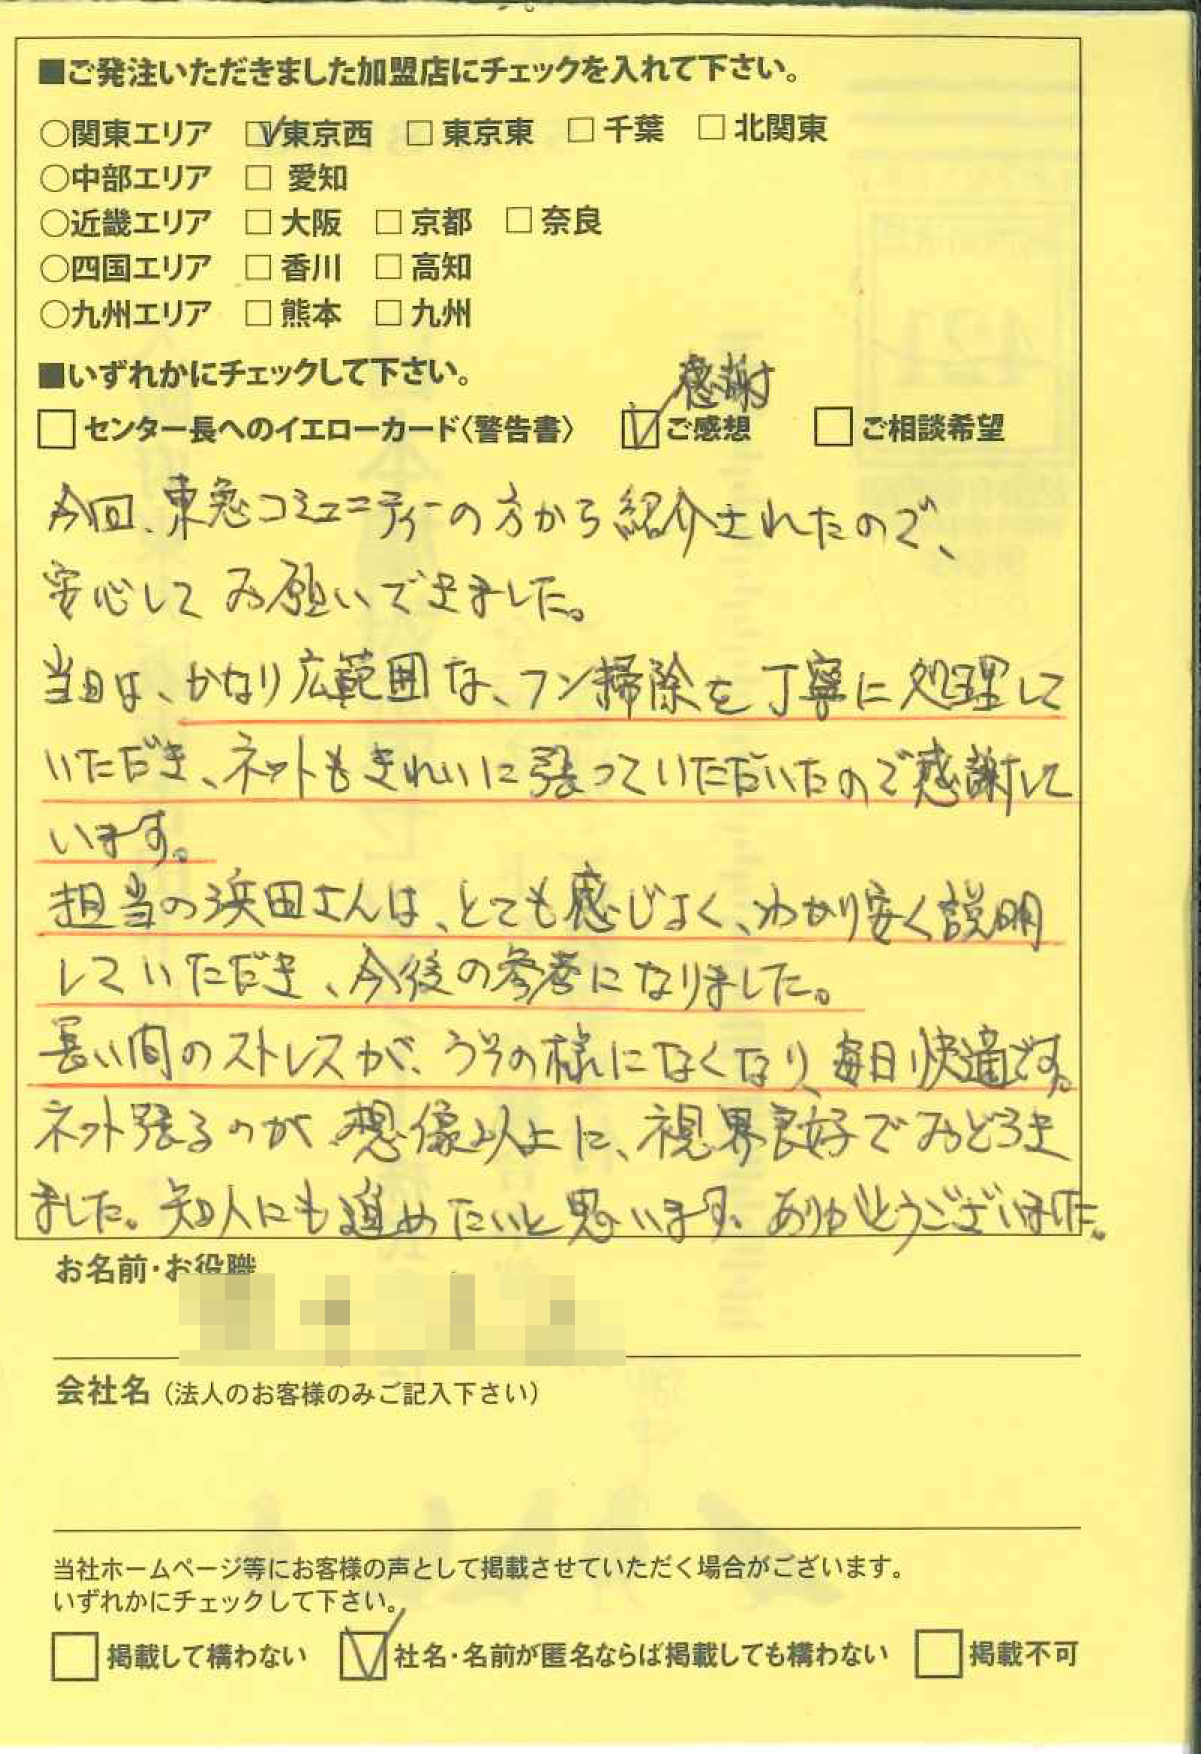 ■ご発注いただきました加盟店にチェックを入れて下さい。
○関東エリア ☑東京西 □ 東京東 □ 千葉 □ 北関東
○中部エリア □ 愛知
○近畿エリア □ 大阪 □ 京都 □ 奈良
○四国エリア □ 香川 □ 高知
○九州エリア □ 熊本 □ 九州
■いずれかにチェックして下さい。
感謝
□ センター長へのイエローカード〈警告書〉 ☑ ご感想 □ ご相談希望
今回、東急コミュニティーの方から紹介されたので、
安心してお願いできました。
当日は、かなり広範囲な、フン掃除を丁寧に処理して
いただき、ネットもきれいに張っていただいたので感謝して
います。
担当の浜田さんは、とても感じよく、わかり安く説明
していただき、今後の参考になりました。
長い間のストレスが、うその様になくなり、毎日快適です。
ネット張るのが想像以上に、視界良好でおどろき
ました。知人にも進めたいと思います。ありがとうございました。
お名前・お役職
会社名（法人のお客様のみご記入下さい）
当社ホームページ等にお客様の声として掲載させていただく場合がございます。
いずれかにチェックして下さい。
□ 掲載して構わない ☑ 社名・名前が匿名ならば掲載しても構わない □ 掲載不可